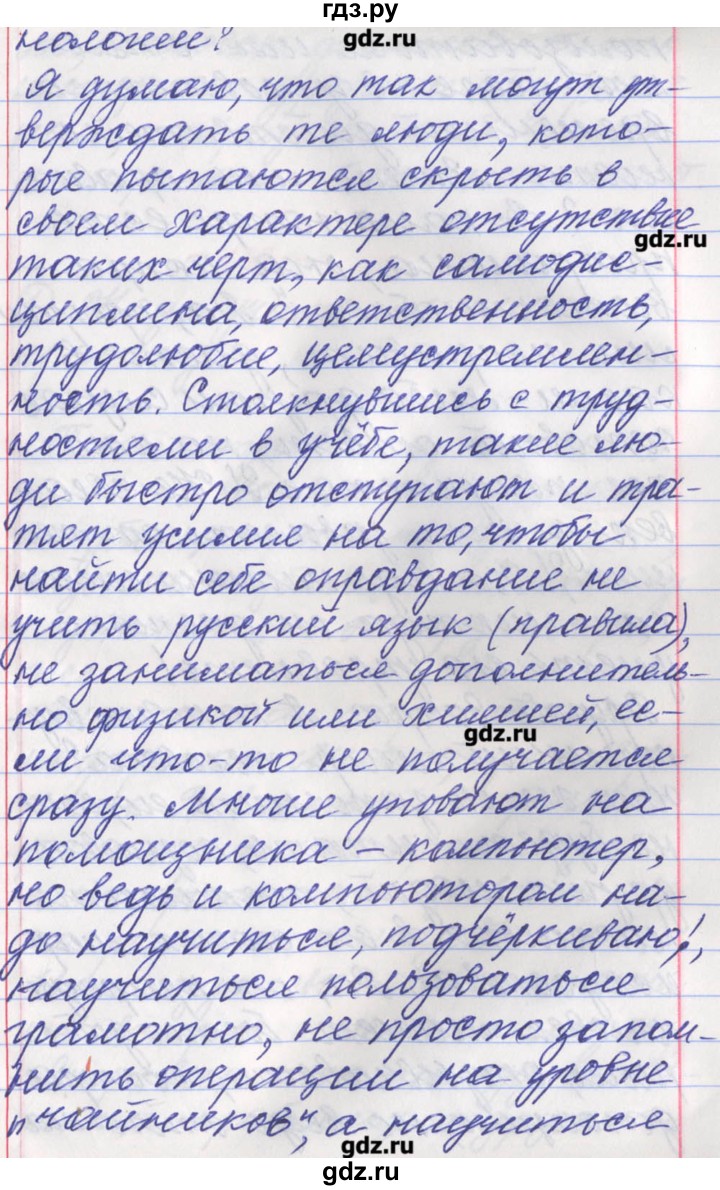 гдз.ру
нологии?
gdz.ru
Я думаю, что так могут ут-
верждать те люди, кото-
рые пытаются скрыть в
своем характере отсутствие
gdz.ru
таких черт, как самодис-
циплина, ответственность,
трудолюбие, целеустремлен-
ность. Столкнувшись с труд-
ностями в учёбе, такие лю-
ди быстро отступают и тра-
тят усилия на то, чтобы
найти себе оправдание не
учить русский язык (правила),
не заниматься дополнитель-
но физикой или химией, ес-
gdz.ru
ли что-то не получается
сразу. Многие уповают на
помощника – компьютер,
но ведь и компьютором на-
до научиться, подчёркиваю!,
научиться пользоваться
грамотно, не просто запом-
нить операции на уровне
„чайников“, а научиться
gdz.ru
gdz.ru